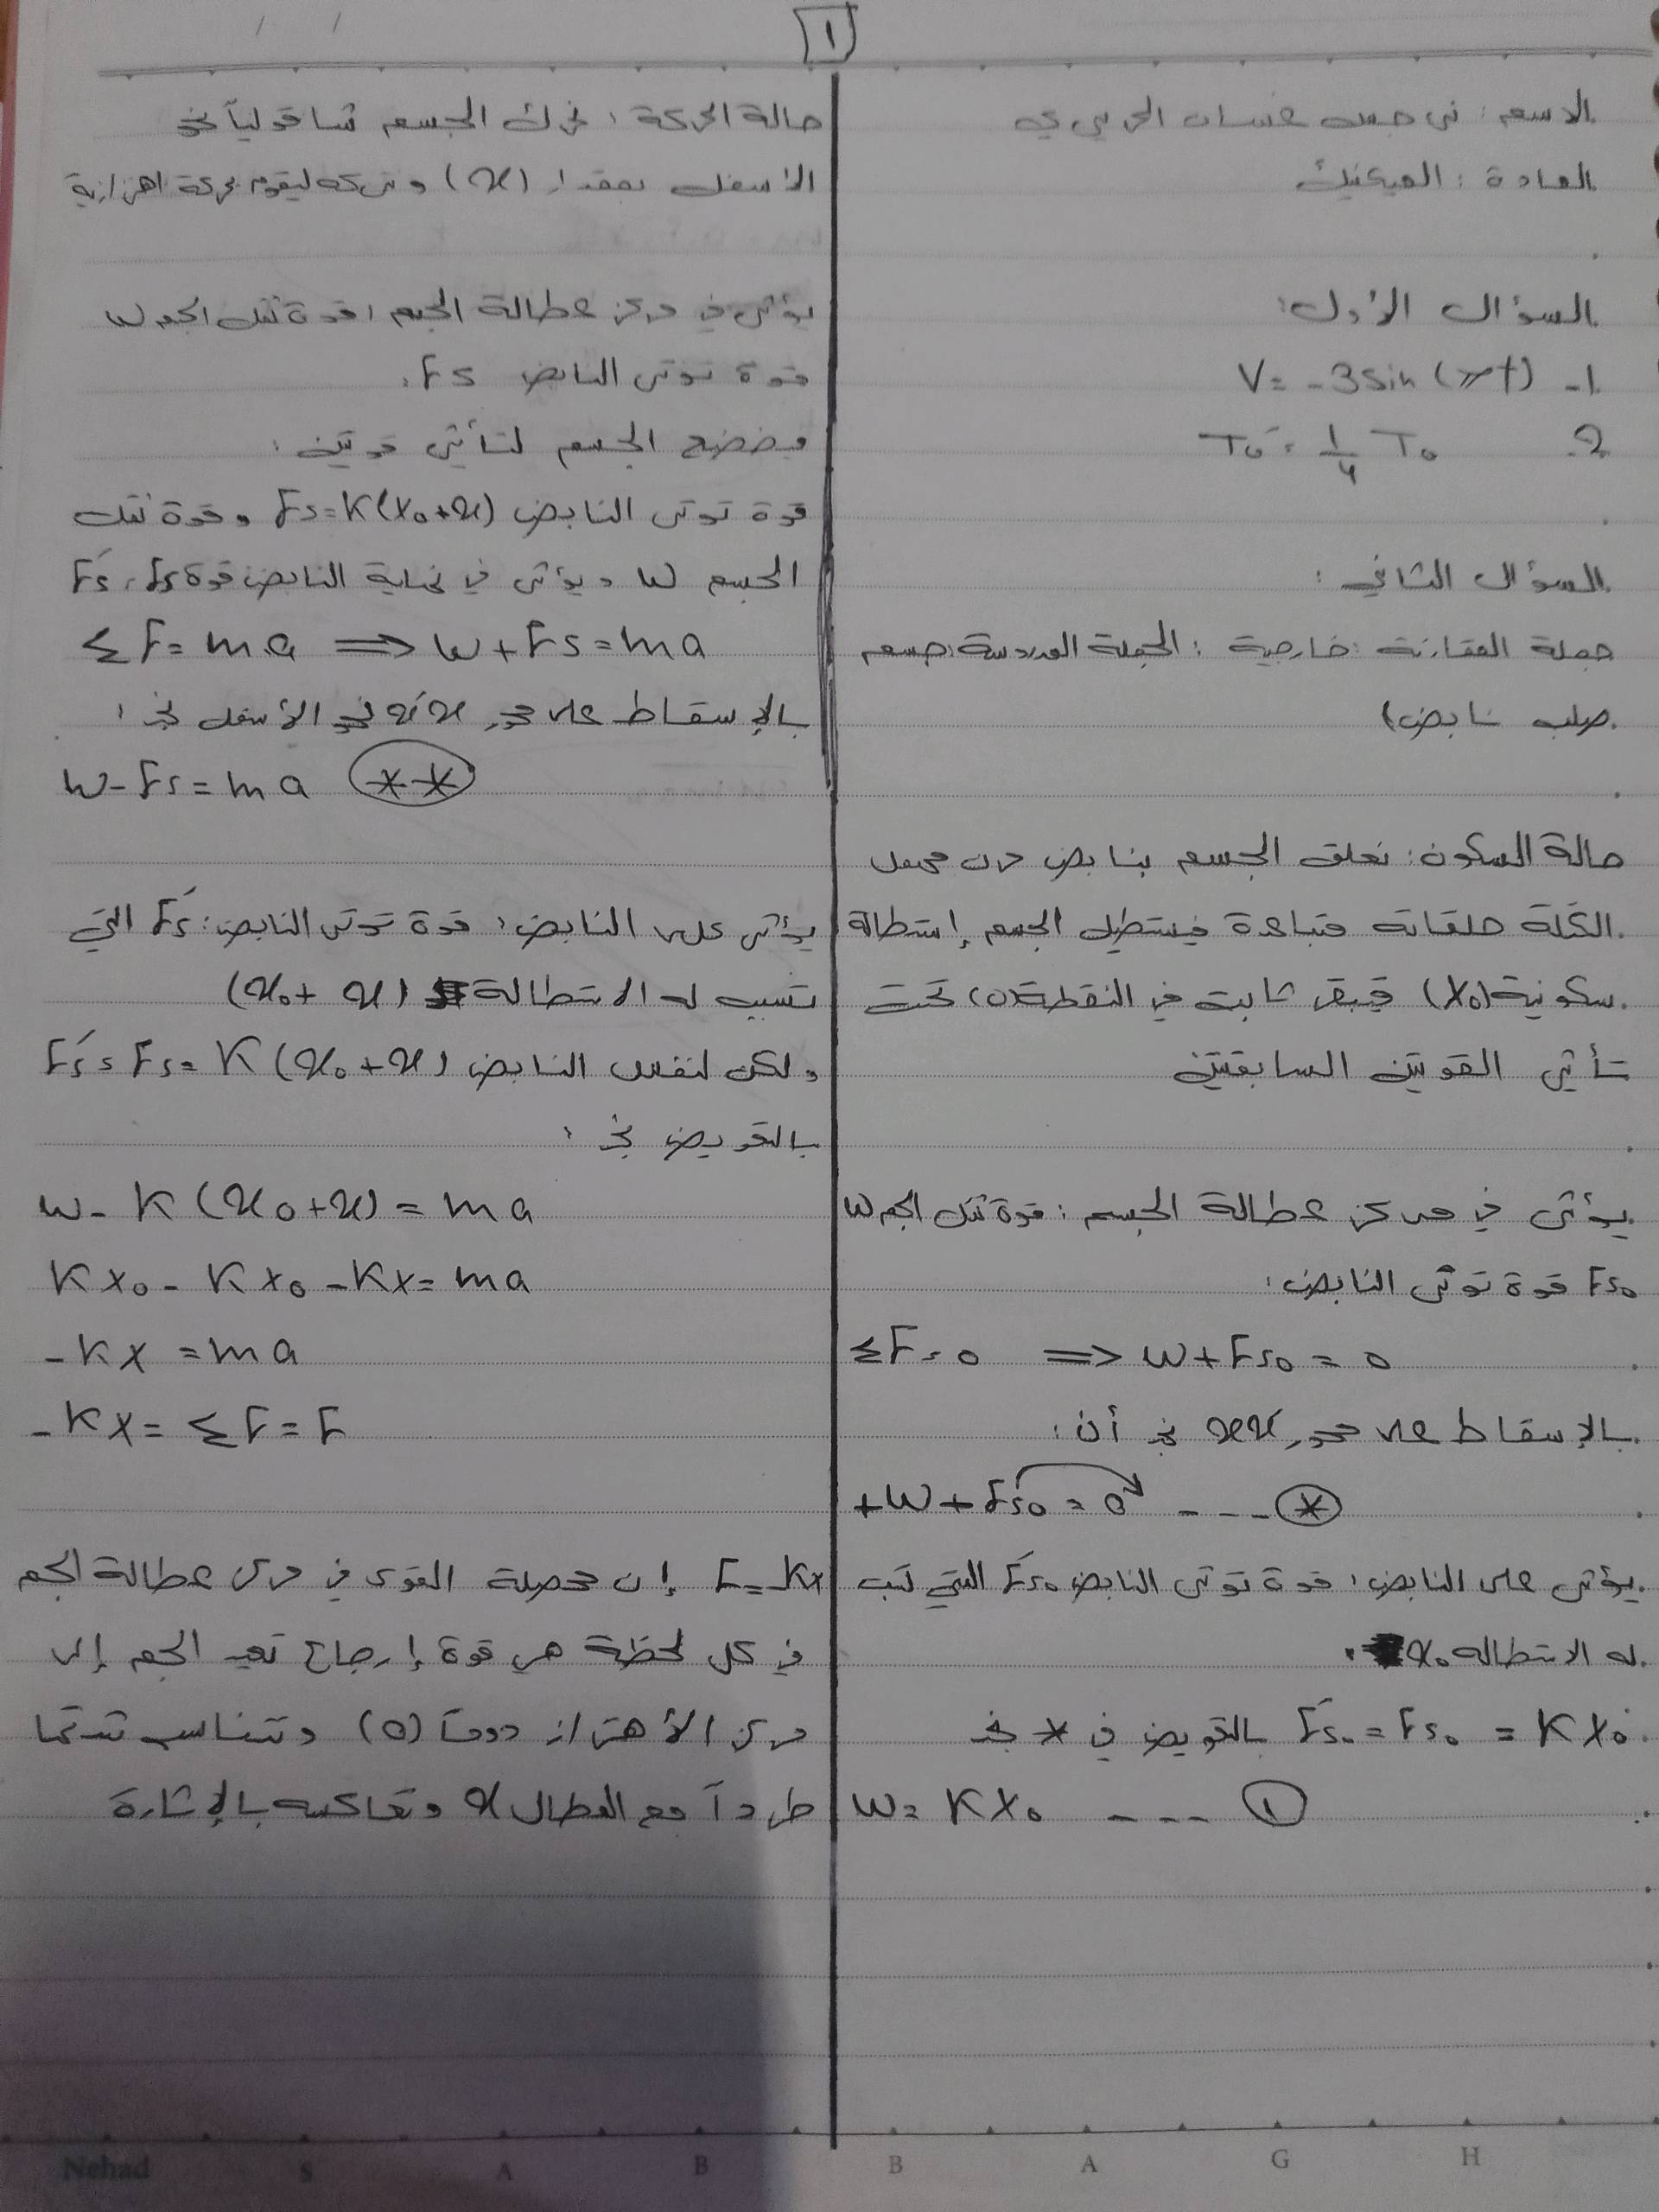 ١
الاسم: نرجس غسان الحريري
المادة: الميكانيك
السؤال الأول:
1- V = -3 sin (πt)
2. T₀' = 1/4 T₀
السؤال الثاني:
جملة المقارنة: خارجية: الجملة المدروسة: جسم
صلب نابض)
حالة السكون: نعلق الجسم بنابض مرن مهمل
الكتلة حلقاته متباعدة فيستطيل الجسم إستطالة
سكونية (X₀) فيبقى ثابت في النقطة (o) تحت
تأثير القوتين السابقتين
يؤثر في مركز عطالة الجسم: قوة ثقل الجسم W
Fs₀ قوة توتر النابض:
ΣF = 0 ⟹ W + Fs₀ = 0
بالإسقاط على محور xx' نجد أن:
+W + Fs₀ = 0 --- *
يؤثر على النابض: قوة توتر النابض Fs₀' التي تسب
له الاستطالة x₀.
Fs₀' = Fs₀ = K X₀ بالتعويض في * نجد
W = K X₀ --- ①
حالة الحركة: نحرك الجسم شاقولياً نحو
الأسفل بمقدار (x) ونتركه ليقوم بحركة اهتزازية
يؤثر في مركز عطالة الجسم: قوة ثقل الجسم W
قوة توتر النابض Fs.
فيخضع الجسم لتأثير قوتين:
قوة توتر النابض Fs = K(X₀+x) وقوة ثقل
الجسم W ويؤثر في نهاية النابض قوة Fs, Fs'
ΣF = ma ⟹ W + Fs = ma
بالإسقاط على محور xx' نحو الأسفل نجد:
W - Fs = ma **
يؤثر على النابض: قوة توتر النابض: Fs' التي
تسبب له الاستطالة (x₀ + x)
ولكن لنفس النابض Fs' = Fs = K (x₀ + x)
بالتعويض نجد:
W - K (x₀ + x) = ma
K x₀ - K x₀ - Kx = ma
-Kx = ma
-Kx = ΣF = F
F = -Kx إن محصلة القوى في مركز عطالة الجسم
في كل لحظة هي قوة إرجاع تعيد الجسم إلى
مركز الأهتزاز دوماً (o) وتتناسب شدتها
طرداً مع المطال x وتعاكسه بالإشارة
Nehad S A B B A G H